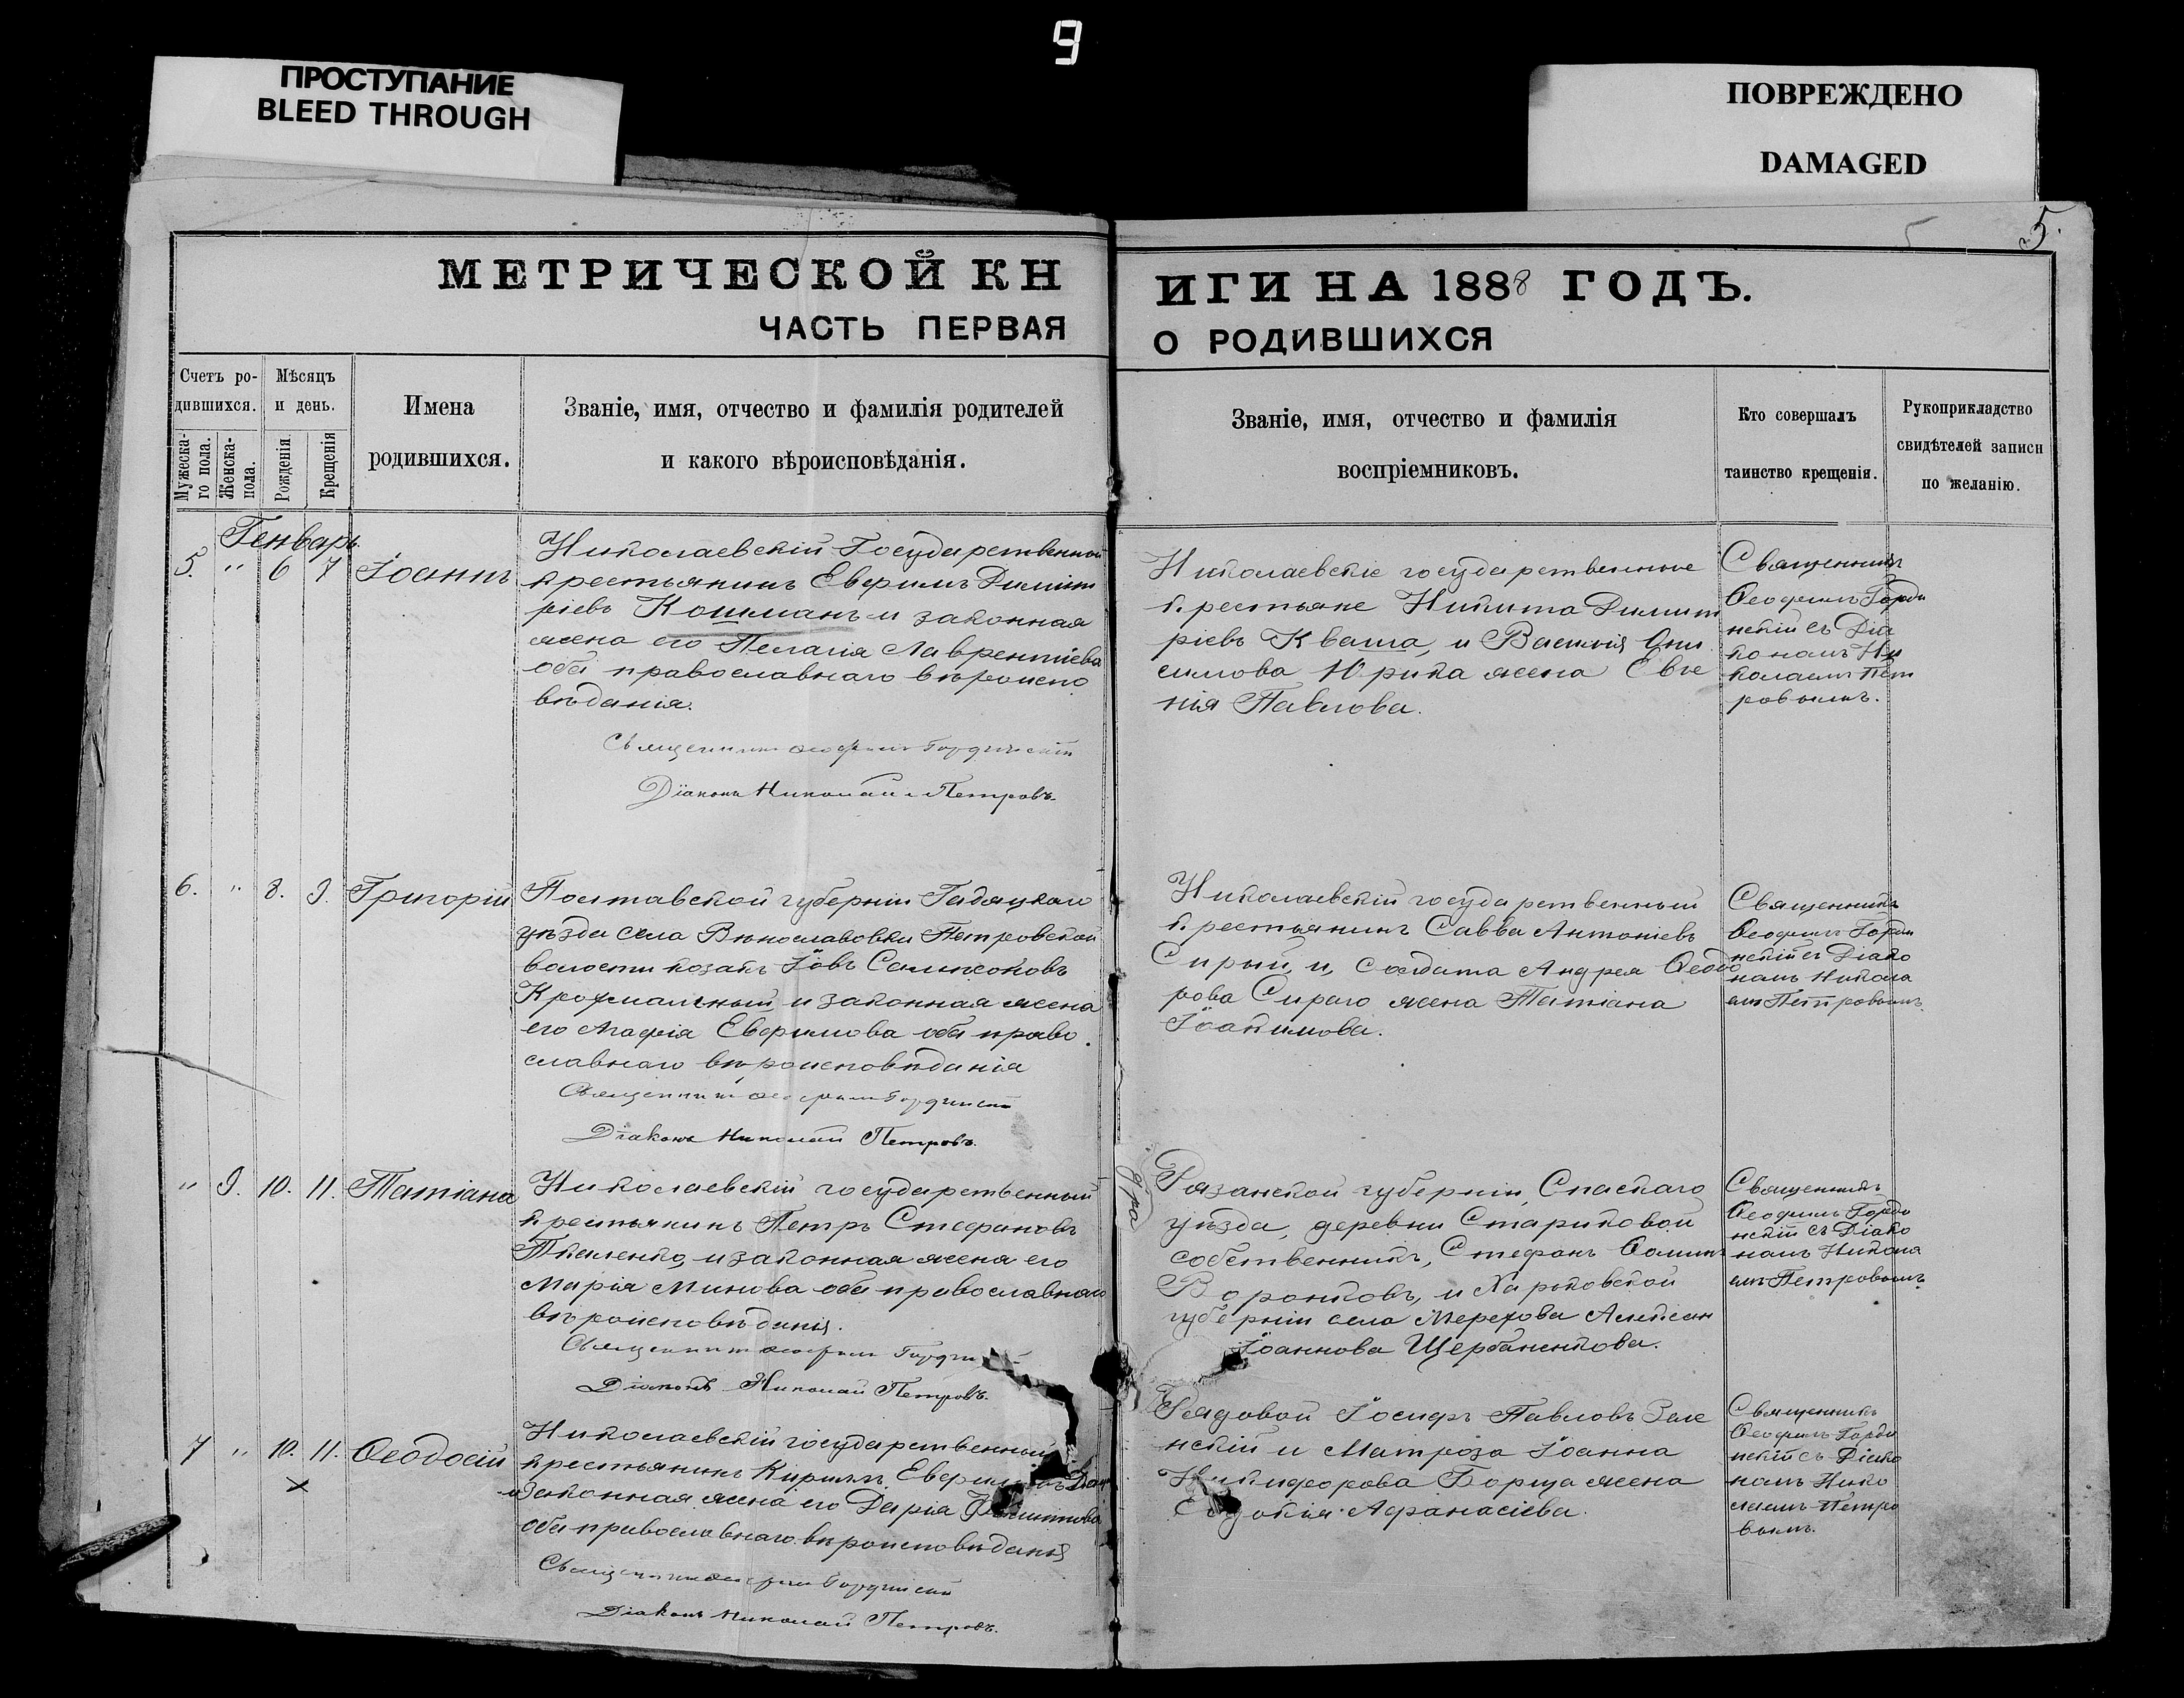 9
ПРОСТУПАНИЕ
BLEED THROUGH
ПОВРЕЖДЕНО
DAMAGED
5.
МЕТРИЧЕСКОЙ КН
ИГИ НА 1888 ГОДЪ.
ЧАСТЬ ПЕРВАЯ
О РОДИВШИХСЯ
Счетъ ро-
дившихся.
Мужеска-
го пола.
Женска-
пола.
Мѣсяцъ
и день.
Рожденія.
Крещенія
Имена
родившихся.
Званіе, имя, отчество и фамилія родителей
и какого вѣроисповѣданія.
Званіе, имя, отчество и фамилія
воспріемниковъ.
Кто совершалъ
таинство крещенія.
Рукоприкладство
свидѣтелей записи
по желанію.
Генварь
5. " 6 7 Іоаннъ
Николаевскій Государственный
крестьянинъ Евфимъ Димит
ріевъ Кошманъ и законная
жена его Пелагія Лаврентіева
оба православнаго вѣроиспо
вѣданія.
Священникъ Ѳеофилъ Гординскій
Діаконъ Николай Петровъ.
Николаевскіе государственные
крестьяне Никита Димит
ріевъ Кваша, и Василія Они
симова Юрика жена Евге
нія Павлова.
Священникъ
Ѳеофилъ Горди
нскій съ Діа
кономъ Ни
колаемъ Пет
ровымъ.
6. " 8. 9. Григорій
Полтавской губерніи Гадяцкаго
уѣзда села Вѣнославовки Петровской
волости козакъ Іовъ Сампсоновъ
и законная жена
его Агафія Евфимова оба право
славнаго вѣроисповѣданія
Священникъ Ѳеофилъ Гординскій
Діаконъ Николай Петровъ.
Николаевскій государственный
крестьянинъ Савва Антоніевъ
Сирый, и, солдата Андрея Ѳеодо
рова Сираго жена Татіана
Іоакимова.
Священникъ
Ѳеофилъ Горди
нскій съ Діако
номъ Никола
емъ Петровымъ.
" 9. 10. 11. Татіана
Николаевскій государственный
крестьянинъ Петръ Стефановъ
Ткаленко, и законная жена его
Марія Минова оба православнаго
вѣроисповѣданія.
Священникъ Ѳеофилъ
Діаконъ Николай Петровъ.
Рязанской губерніи, Спаскаго
уѣзда, деревни Стариковой
собственникъ, Стефанъ Ѳоминъ
Воронковъ, и Харьковской
губерніи села Мерефова
Іоаннова Щербаненкова.
Священникъ
Ѳеофилъ Горди
нскій съ Діако
номъ Никола
емъ Петровымъ.
7 " 10. 11. Ѳеодосій
Николаевскій государственный
крестьянинъ Кириллъ
и законная жена его Дарія
оба православнаго вѣроисповѣданія
Священникъ Ѳеофилъ Гординскій
Діаконъ Николай Петровъ.
Рядовой Іосифъ Павловъ Зеле
нскій и Матроза Іоанна
Никифорова Борща жена
Евдокія Афанасіева.
Священникъ
Ѳеофилъ Горди
нскій съ Діако
номъ Нико
лаемъ Петро
вымъ.